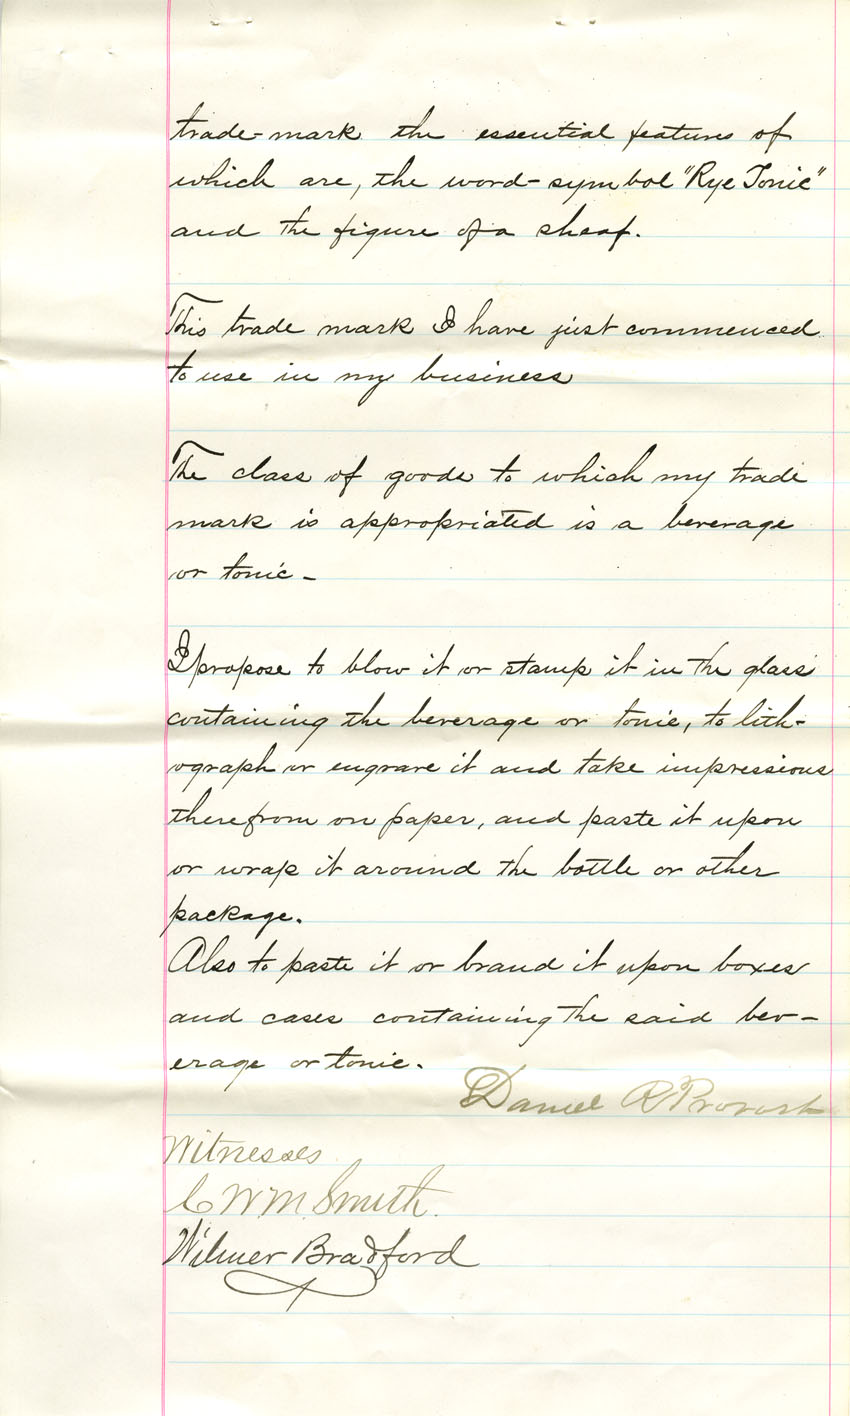 trade-mark the essential features of
which are, the word-symbol "Rye Tonic"
and the figure of a sheaf.
This trade mark I have just commenced
to use in my business
The class of goods to which my trade
mark is appropriated is a beverage
or tonic-
I propose to blow it or stamp it in the glass
containing the beverage or tonic, to lith-
ograph or engrave it and take impressions
therefrom on paper, and paste it upon
or wrap it around the bottle or other
package.
Also to paste it or brand it upon boxes
and cases containing the said bev-
erage or tonic.
Daniel R Provost
Witnesses
C W M Smith.
Wilmer Bradford